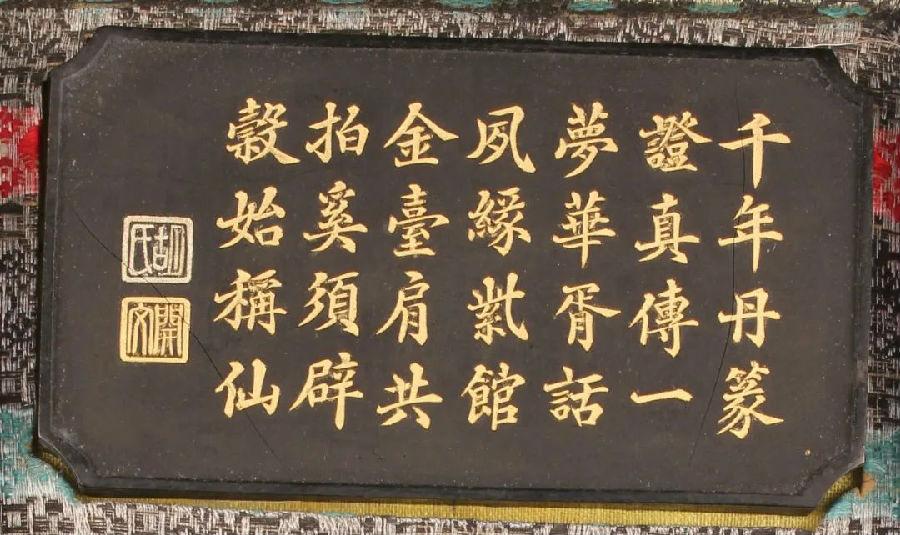 千年丹篆
證真傳一
夢華胥話
夙緣紫館
金臺肩共
拍奚須辟
穀始稱仙
胡氏
開文